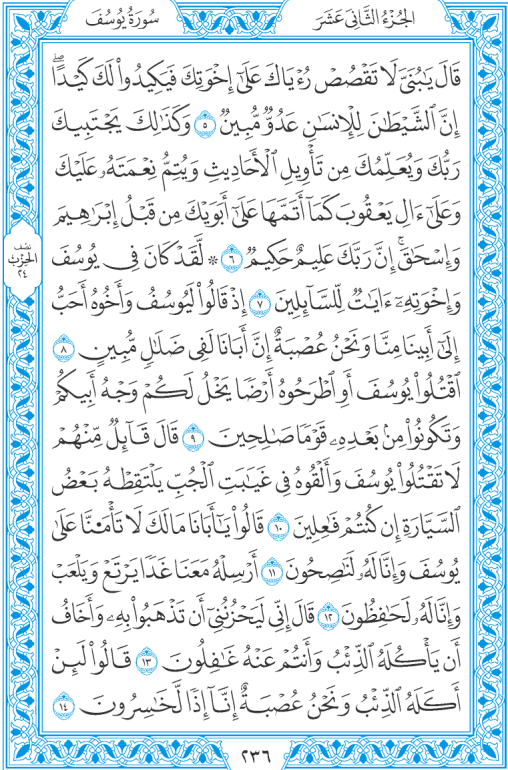 الجُزْءُ الثَّانِي عَشَرَ
سُورَةُ يُوسُفَ
قَالَ يَٰبُنَيَّ لَا تَقْصُصْ رُءْيَاكَ عَلَىٰٓ إِخْوَتِكَ فَيَكِيدُوا۟ لَكَ كَيْدًاۖ
إِنَّ ٱلشَّيْطَٰنَ لِلْإِنسَٰنِ عَدُوٌّ مُّبِينٌ ٥ وَكَذَٰلِكَ يَجْتَبِيكَ
رَبُّكَ وَيُعَلِّمُكَ مِن تَأْوِيلِ ٱلْأَحَادِيثِ وَيُتِمُّ نِعْمَتَهُۥ عَلَيْكَ
وَعَلَىٰٓ ءَالِ يَعْقُوبَ كَمَآ أَتَمَّهَا عَلَىٰٓ أَبَوَيْكَ مِن قَبْلُ إِبْرَٰهِيمَ
وَإِسْحَٰقَۚ إِنَّ رَبَّكَ عَلِيمٌ حَكِيمٌ ٦ ۞ لَّقَدْ كَانَ فِي يُوسُفَ
نصف
الحِزْبِ
٢٤
وَإِخْوَتِهِۦٓ ءَايَٰتٌ لِّلسَّآئِلِينَ ٧ إِذْ قَالُوا۟ لَيُوسُفُ وَأَخُوهُ أَحَبُّ
إِلَىٰٓ أَبِينَا مِنَّا وَنَحْنُ عُصْبَةٌ إِنَّ أَبَانَا لَفِي ضَلَٰلٍ مُّبِينٍ ٨
ٱقْتُلُوا۟ يُوسُفَ أَوِ ٱطْرَحُوهُ أَرْضًا يَخْلُ لَكُمْ وَجْهُ أَبِيكُمْ
وَتَكُونُوا۟ مِنۢ بَعْدِهِۦ قَوْمًا صَٰلِحِينَ ٩ قَالَ قَآئِلٌ مِّنْهُمْ
لَا تَقْتُلُوا۟ يُوسُفَ وَأَلْقُوهُ فِي غَيَٰبَتِ ٱلْجُبِّ يَلْتَقِطْهُ بَعْضُ
ٱلسَّيَّارَةِ إِن كُنتُمْ فَٰعِلِينَ ١٠ قَالُوا۟ يَٰٓأَبَانَا مَالَكَ لَا تَأْمَ۫نَّا عَلَىٰ
يُوسُفَ وَإِنَّا لَهُۥ لَنَٰصِحُونَ ١١ أَرْسِلْهُ مَعَنَا غَدًا يَرْتَعْ وَيَلْعَبْ
وَإِنَّا لَهُۥ لَحَٰفِظُونَ ١٢ قَالَ إِنِّي لَيَحْزُنُنِيٓ أَن تَذْهَبُوا۟ بِهِۦ وَأَخَافُ
أَن يَأْكُلَهُ ٱلذِّئْبُ وَأَنتُمْ عَنْهُ غَٰفِلُونَ ١٣ قَالُوا۟ لَئِنْ
أَكَلَهُ ٱلذِّئْبُ وَنَحْنُ عُصْبَةٌ إِنَّآ إِذًا لَّخَٰسِرُونَ ١٤
٢٣٦